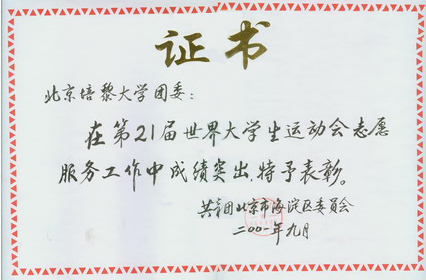 证书
北京培黎大学团委：
在第21届世界大学生运动会志愿
服务工作中成绩突出，特予表彰。
共青团北京市海淀区委员会
二〇〇一年九月